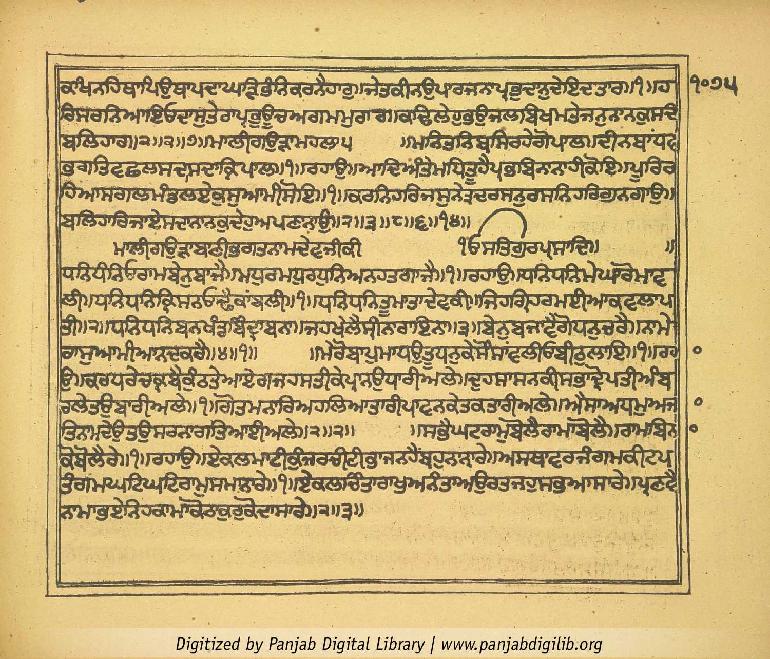 ਕੰਥਿਨਹਿਥਾਪਿਉਥਾਪਦਾਘੜਿਭੰਨਿਕਰਨੈਹਾਰੁ॥ਜੇਤਕੀਨਉਪਾਰਜਨਾਪ੍ਰਭੁਦਾਨੁਦੇਇਦਾਤਾਰ॥੧॥ਹ ੧੦੭੫
ਰਿਸਰਨਿਆਇਓਦਾਸੁਤੇਰਾਪ੍ਰਭੂਊਚਅਗਮਮੁਰਾਰ॥ਕਢਿਲੇਹੁਭਉਜਲਬਿਖਮਤੇਜਨੁਨਾਨਕੁਸਦ
ਬਲਿਹਾਰ॥੨॥੨॥੭॥ਮਾਲੀਗਉੜਾਮਹਲਾ੫ ॥ਮਨਿਤਨਿਬਸਿਰਹੇਗੋਪਾਲ॥ਦੀਨਬਾਂਧਵ
ਭਗਤਿਵਛਲਸਦਾਸਦਾਕ੍ਰਿਪਾਲ॥੧॥ਰਹਾਉ॥ਆਦਿਅੰਤੇਮਧਿਤੂਹੈਪ੍ਰਭਬਿਨਾਨਾਹੀਕੋਇ॥ਪੂਰਿਰ
ਹਿਆਸਗਲਮੰਡਲਏਕੁਸੁਆਮੀਸੋਇ॥੧॥ਕਰਨਿਹਰਿਜਸੁਨੇਤ੍ਰਦਰਸਨੁਰਸਨਿਹਰਿਗੁਨਗਾਉ॥
ਬਲਿਹਾਰਿਜਾਏਸਦਾਨਾਨਕੁਦੇਹੁਅਪਣਾਨਾਉ॥੨॥੩॥੮॥੬॥੧੪॥
ਮਾਲੀਗਉੜਾਬਾਣੀਭਗਤਨਾਮਦੇਵਜੀਕੀ ੴਸਤਿਗੁਰਪ੍ਰਸਾਦਿ॥ ॥
ਧਨਿਧੰਨਿਓਰਾਮਬੇਨੁਬਾਜੈ॥ਮਧੁਰਮਧੁਰਧੁਨਿਅਨਹਤਗਾਜੈ॥੧॥ਰਹਾਉ॥ਧਨਿਧਨਿਮੇਘਾਰੋਮਾਵ
ਲੀ॥ਧਨਿਧਨਿਕ੍ਰਿਸਨਓਢੈਕਾਂਬਲੀ॥੧॥ਧਨਿਧਨਿਤੂਮਾਤਾਦੇਵਕੀ॥ਜਿਹਗ੍ਰਿਹਰਮਈਆਕਵਲਾਪ
ਤੀ॥੨॥ਧਨਿਧਨਿਬਨਖੰਡਬਿੰਦ੍ਰਾਬਨਾ॥ਜਹਖੇਲੈਸ੍ਰੀਨਾਰਾਇਨਾ॥੩॥ਬੇਨੁਬਜਾਵੈਗੋਧਨੁਚਰੈ॥ਨਾਮੇ
ਕਾਸੁਆਮੀਆਨਦਕਰੈ॥੪॥੧॥ ॥ਮੇਰੋਬਾਪੁਮਾਧਉਤੂਧਨੁਕੇਸੌਸਾਂਵਲੀਓਬੀਠੁਲਾਇ॥੧॥ਰਹਾ
ਉ॥ਕਰਧਰੇਚਕ੍ਰਬੈਕੁੰਠਤੇਆਏਗਜਹਸਤੀਕੇਪ੍ਰਾਨਉਧਾਰੀਅਲੇ॥ਦੁਹਸਾਸਨਕੀਸਭਾਦ੍ਰੋਪਤੀਅੰਬ
ਰਲੇਤਉਬਾਰੀਅਲੇ॥੧॥ਗੋਤਮਨਾਰਿਅਹਲਿਆਤਾਰੀਪਾਵਨਕੇਤਕਤਾਰੀਅਲੇ॥ਐਸਾਅਧਮੁਅਜਾ
ਤਿਨਾਮਦੇਉਤਉਸਰਨਾਗਤਿਆਈਅਲੇ॥੨॥੨॥ ॥ਸਭੈਘਟਰਾਮੁਬੋਲੈਰਾਮਾਬੋਲੈ॥ਰਾਮਬਿਨਾ
ਕੋਬੋਲੈਰੇ॥੧॥ਰਹਾਉ॥ਏਕਲਮਾਟੀਕੁੰਜਰਚੀਟੀਭਾਜਨਹੈਂਬਹੁਨਾਨਾਰੇ॥ਅਸਥਾਵਰਜੰਗਮਕੀਟਪ
ਤੰਗਮਘਟਿਘਟਿਰਾਮੁਸਮਾਨਾਰੇ॥੧॥ਏਕਲਚਿੰਤਾਰਾਖੁਅਨੰਤਾਅਉਰਤਜਹੁਸਭਆਸਾਰੇ॥ਪ੍ਰਣਵੈ
ਨਾਮਾਭਏਨਿਹਕਾਮਾਕੋਠਾਕੁਰੁਕੋਦਾਸਾਰੇ॥੨॥੩॥
Digitized by Panjab Digital Library | www.panjabdigilib.org